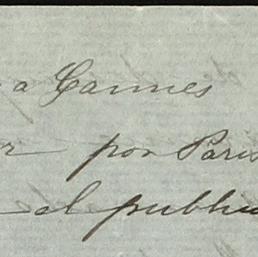 a Cannes
por Paris
el publi